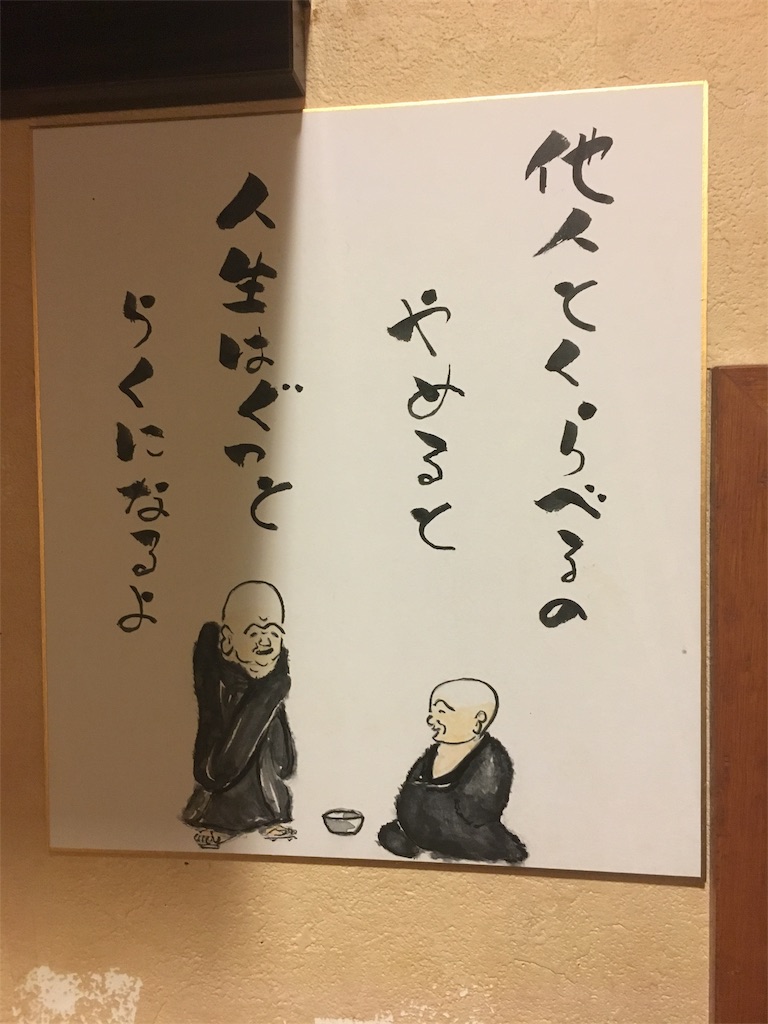 他人とくらべるの
やめると
人生はぐっと
らくになるよ